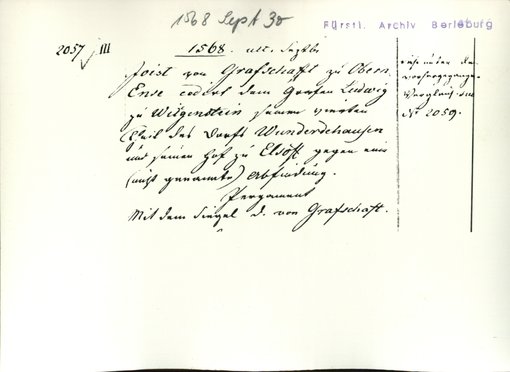 1568 Sept 30
Fürstl. Archiv Berleburg
2057 III
1568. ult. Septbr
Joist von Grafschaft zu Obern
Ense cedirt dem Grafen Ludwig
zu Witgenstein seinen vierten
Theil des Dorfs Wunderthausen
und seinen Hof zu Elsoff gegen eine
(nicht genannte) Abfindung.
Pergament
Mit dem Siegel d. von Grafschaft.
siehe unter
vorhergegangenen
Vergleich
No 2059.